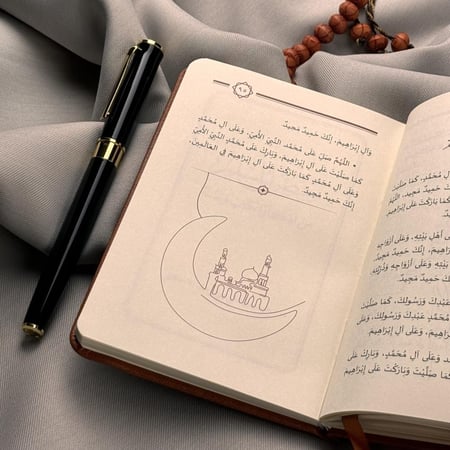 ٩٥
وَآلِ إِبْرَاهِيمَ، إِنَّكَ حَمِيدٌ مَجِيدٌ.
• اللَّهُمَّ صَلِّ عَلَى مُحَمَّدٍ النَّبِيِّ الأُمِّيِّ، وَعَلَى آلِ مُحَمَّدٍ،
كَمَا صَلَّيْتَ عَلَى آلِ إِبْرَاهِيمَ، وَبَارِكْ عَلَى مُحَمَّدٍ النَّبِيِّ الأُمِّيِّ
وَعَلَى آلِ مُحَمَّدٍ، كَمَا بَارَكْتَ عَلَى آلِ إِبْرَاهِيمَ فِي العَالَمِينَ،
إِنَّكَ حَمِيدٌ مَجِيدٌ.
كَمَا صَلَّيْتَ
حَمِيدٌ مَجِيدٌ. اللَّهُمَّ
كَمَا بَارَكْتَ عَلَى
أَهْلِ بَيْتِهِ، وَعَلَى أَزْوَاجِهِ
إِنَّكَ حَمِيدٌ مَجِيدٌ،
بَيْتِهِ، وَعَلَى أَزْوَاجِهِ وَذُرِّيَّتِهِ
حَمِيدٌ مَجِيدٌ.
مُحَمَّدٍ عَبْدِكَ وَرَسُولِكَ، كَمَا
مُحَمَّدٍ عَبْدِكَ وَرَسُولِكَ،
وَعَلَى آلِ إِبْرَاهِيمَ
وَعَلَى آلِ مُحَمَّدٍ، وَبَارِكْ عَلَى
كَمَا صَلَّيْتَ وَبَارَكْتَ عَلَى إِبْرَاهِيمَ